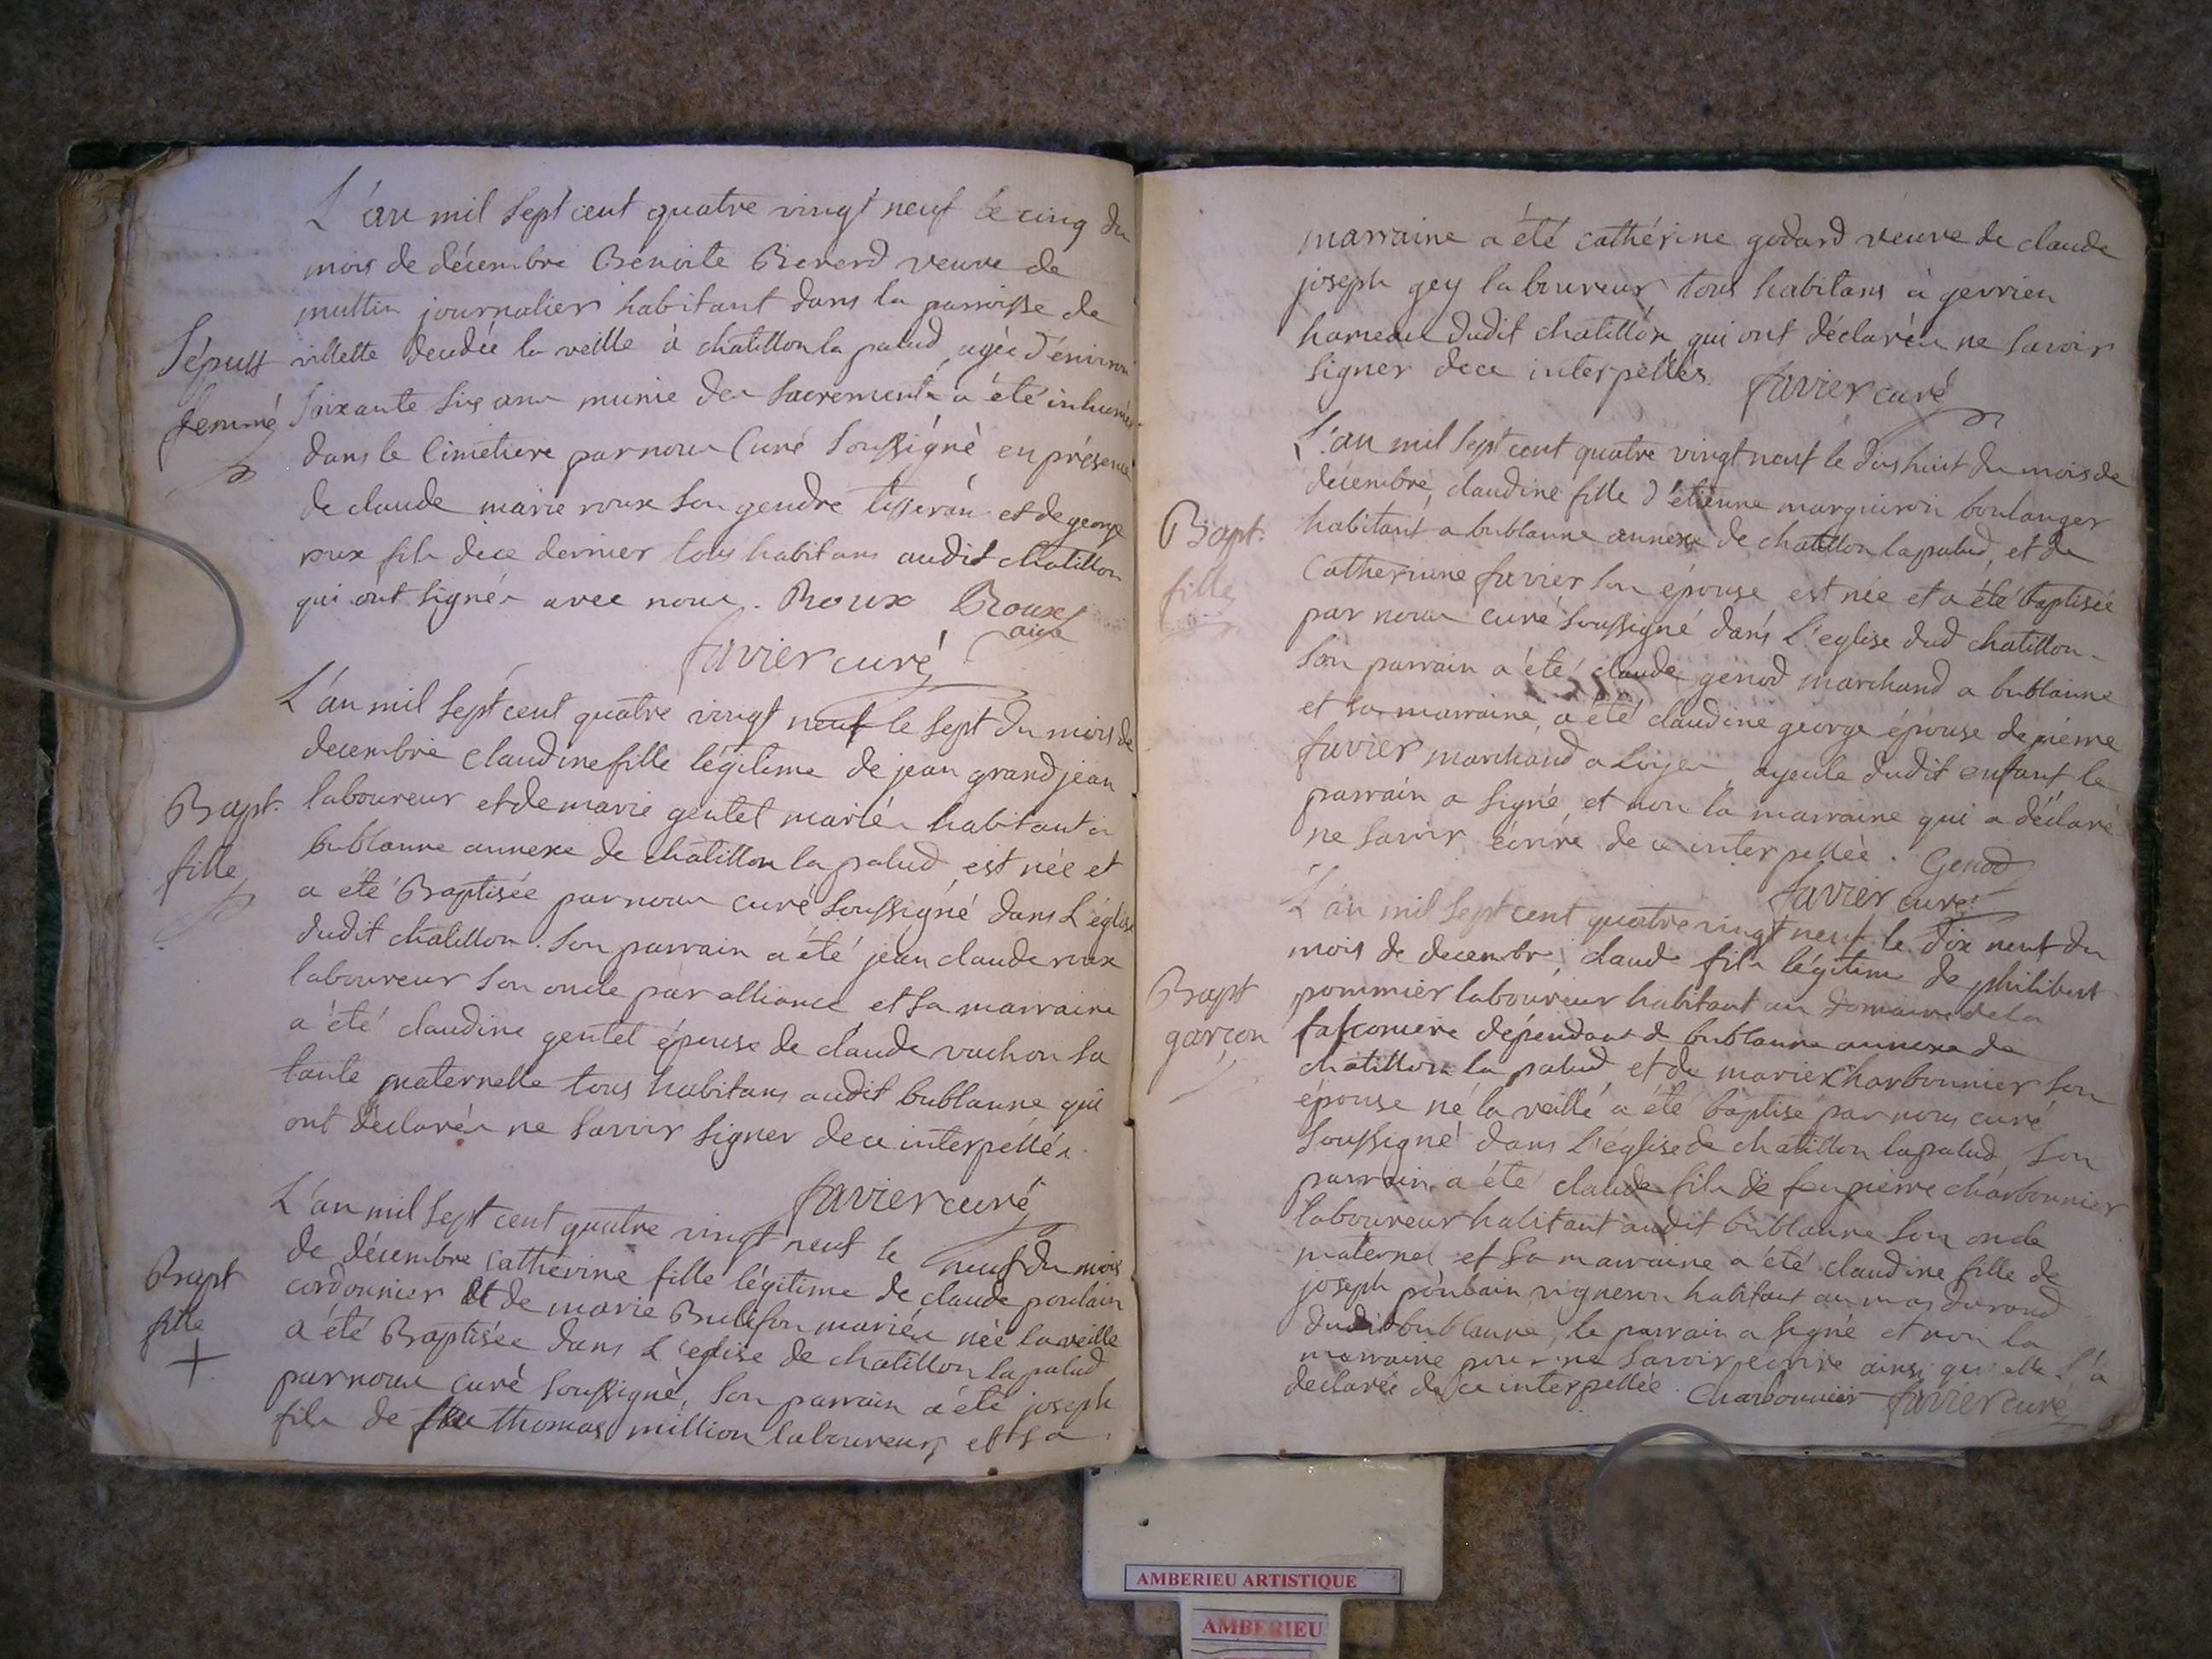 L'an mil sept cent quatre vingt neuf le cinq du
mois de décembre Benoite Bererd veuve de
muttin journalier habitant dans la parroisse de
Sépult
villette décédée la veille à chatillon la palud, agée d'environ
femme
soixante six ans munie des sacrements a été inhumée
dans le Cimetiere par nous Curé soussigné en présence
de claude marie roux son gendre tisseran et de george
roux fils de ce dernier tous habitans audit chatillon
qui ont signés avec nous. Roux Roux
favier curé
L'an mil sept cent quatre vingt neuf le sept du mois de
decembre claudine fille légitime de jean grandjean
Bapt.
laboureur et de marie gentet mariés habitants à
fille
bublanne annexe de chatillon la palud est née et
a été Baptisée par nous curé soussigné dans L'église
dudit chatillon. son parrain a été jean claude roux
laboureur son oncle par alliance et sa marraine
a été claudine gentet épouse de claude vuchon sa
tante maternelle tous habitans audit bublanne qui
ont déclarés ne savoir signer de ce interpellés.
favier curé
L'an mil sept cent quatre vingt neuf le neuf du mois
de décembre cathérine fille légitime de claude poulain
Bapt
cordonnier et de marie Buliffon mariés née la veille
fille
a été Baptisée dans L'eglise de chatillon la palud
par nous curé soussigné, son parrain a été joseph
fils de feu thomas million laboureur, et sa
marraine a été cathérine godard veuve de claude
joseph gey laboureur, tous habitans à gevrieu
hameau dudit chatillon qui ont déclarés ne savoir
signer de ce interpellés. favier curé
L'an mil sept cent quatre vingt neuf le dix huit du mois de
décembre, claudine fille d'étienne marguiron boulanger
Bapt.
habitant a bublanne annexe de chatillon lapalud, et de
fille
Catherinne favier son épouse est née et a été baptisée
par nous curé soussigné dans L'eglise dud chatillon
son parrain a été claude génod marchand a bublanne
et sa marraine a été claudine george épouse de pierre
favier marchand a loyes, ayeule dudit enfant le
parrain a signé, et non la marraine qui a déclaré
ne savoir écrire de ce interpellée. Genod
favier curé
L'an mil sept cent quatre vingt neuf le dix neuf du
mois de decembre, claude fils légitime de philibert
Bapt
pommier laboureur habitant au domaine de la
garçon
falconiere dépendant de bublanne annexe de
chatillon la palud et de marie Charbonnier son
épouse né la veille a été baptisé par nous curé
soussigné dans l'église de chatillon lapalud, son
parrain a été claude fils de feu pierre charbonnier
laboureur habitant audit bublanne son oncle
maternel et sa marraine a été claudine fille de
joseph poubain vigneron habitant au mas durand
dudit bublanne, le parrain a signé et non la
marraine pour ne savoir écrire ainsi qu'elle l'a
declarée de ce interpellée. Charbonnier favier curé
AMBERIEU ARTISTIQUE
AMBERIEU